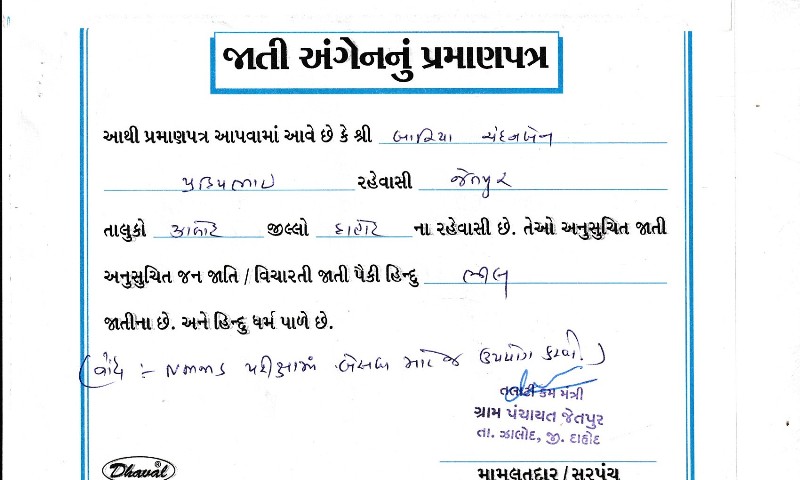 જાતી અંગેનનું પ્રમાણપત્ર
આથી પ્રમાણપત્ર આપવામાં આવે છે કે શ્રી બારિયા ચંદનબેન
પ્રદિપભાઇ રહેવાસી જેતપુર
તાલુકો જીલ્લો દાહોદ ના રહેવાસી છે. તેઓ અનુસુચિત જાતી
અનુસુચિત જન જાતિ / વિચારતી જાતી પૈકી હિન્દુ ભીલ
જાતીના છે. અને હિન્દુ ધર્મ પાળે છે.
(નોંધ :- પરીક્ષામાં બેસવા માટે જ ઉપયોગ કરવો.)
તલાટી કમ મંત્રી
ગ્રામ પંચાયત જેતપુર
તા. ઝાલોદ, જી. દાહોદ
Dhaval
મામલતદાર / સરપંચ